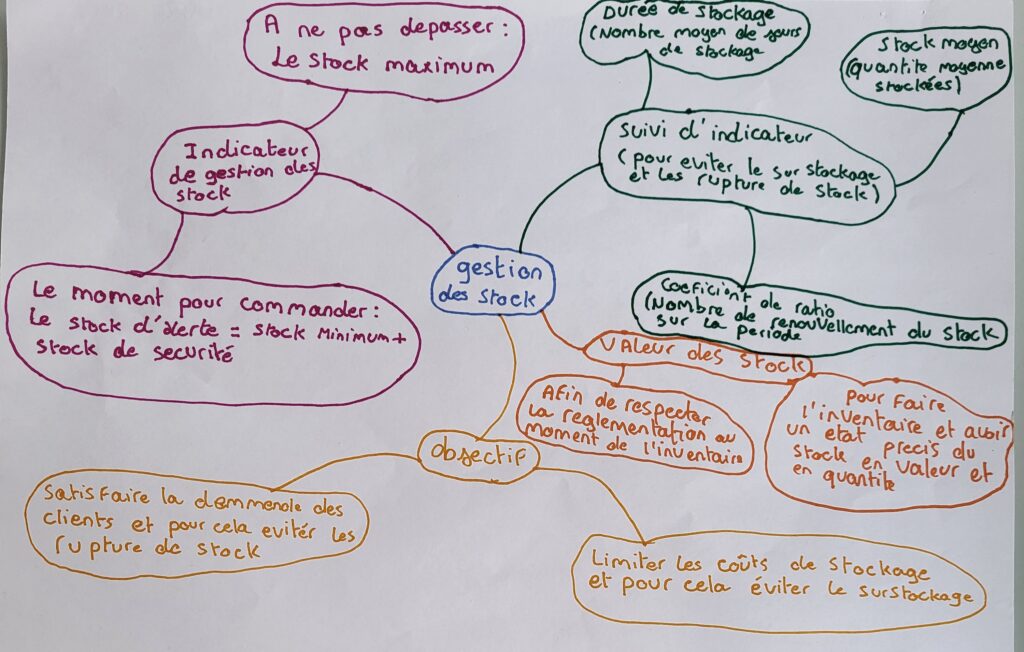 A ne pas depasser :
Le stock maximum
Durée de stockage
(Nombre moyen de jours
de stockage
Stock moyen
(quantite moyenne
stockées)
Indicateur
de gestion des
stock
Suivi d'indicateur
(pour eviter le surstockage
et les rupture de stock)
gestion
des stock
Le moment pour commander :
Le stock d'alerte = stock Minimum +
stock de securité
Coeficient de ratio
(Nombre de renouvellement du stock
sur la periode
Valeur des stock
Afin de respecter
la reglementation au
moment de l'inventaire
pour faire
l'inventaire et avoir
un etat precis du
stock en valeur et
en quantite
Objectif
Satisfaire la demmende des
clients et pour cela evitér les
rupture de stock
Limiter les coûts de stockage
et pour cela éviter le surstockage